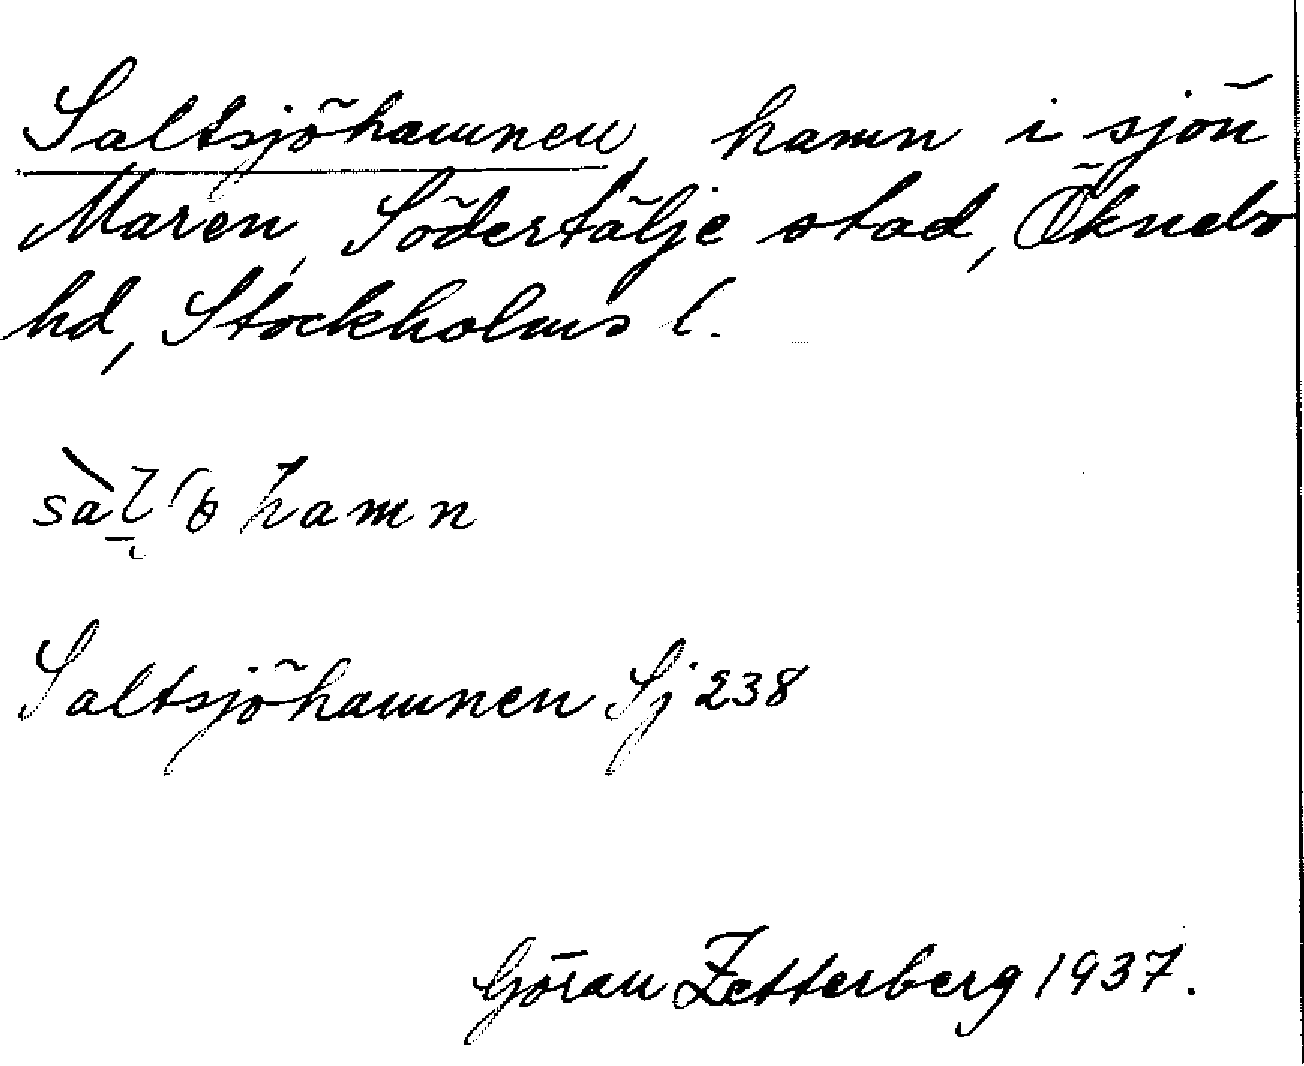 Saltsjöhamnen, hamn i sjön
Maren, Södertälje stad, Öknebo
hd, Stockholms l.
hamn
Saltsjöhamnen Sj 238
Göran Zetterberg 1937.